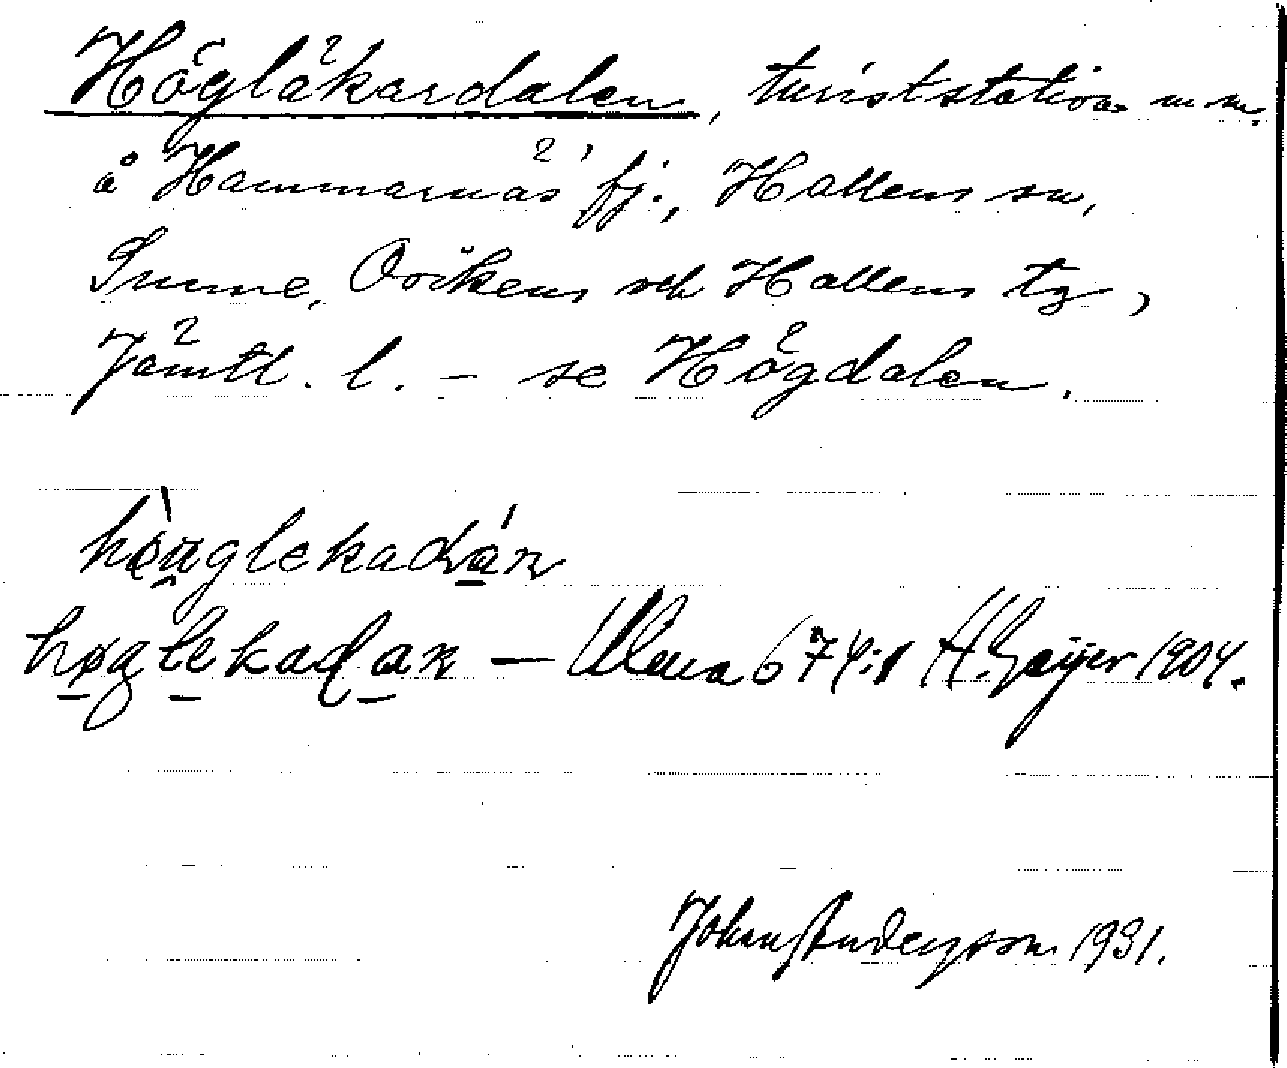 Högläkardalen, turiststation m.m.
å Hammarnäs' fj., Hallens sn,
Sunne, Ovikens och Hallens tg,
Jämtl. l. – se Högdalen.
høuglekadán
høglekadan – Ulma 674:1 H. Geijer 1904.
Johan Andersson 1931.